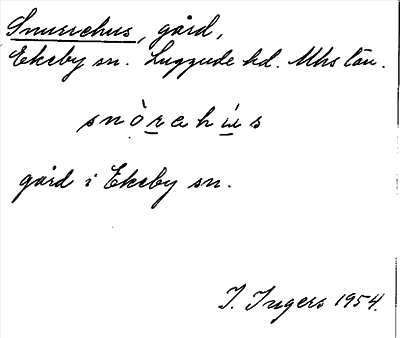 Snurrehus, gård,
Ekeby sn. Luggude hd. Mhs län.
snòrehu̇s
gård i Ekeby sn.
I. Ingers 1954.